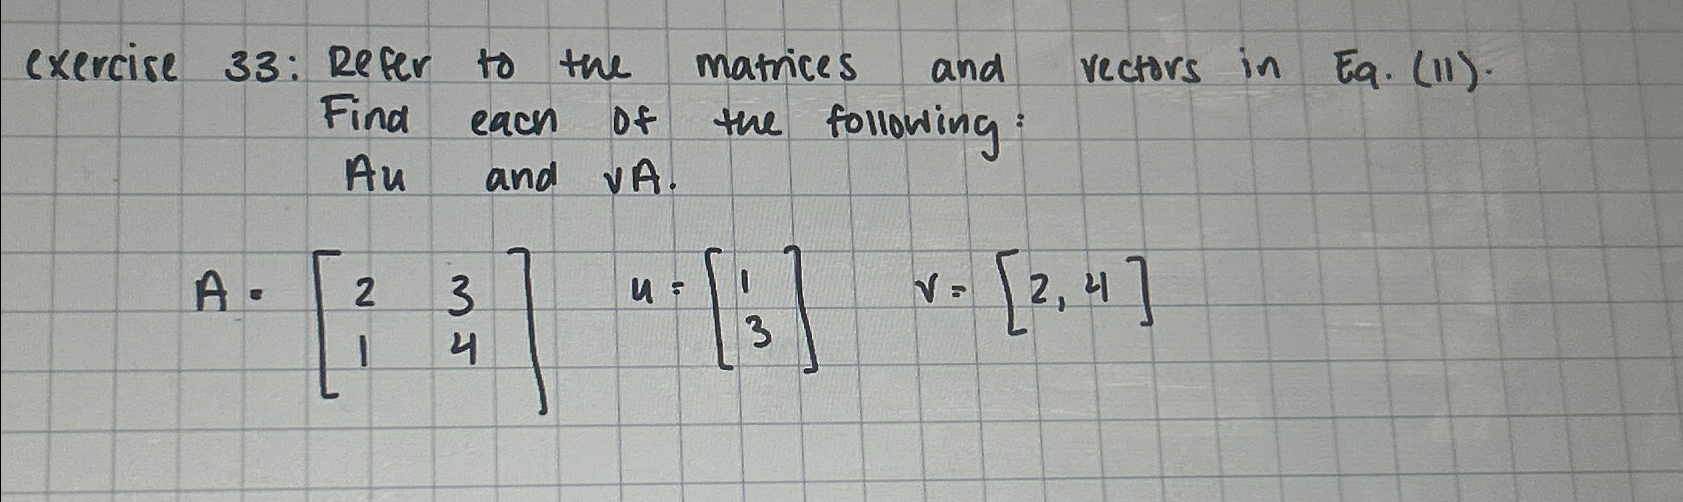 exercise 33: Refer to the matrices and vectors in Eq. (11).
Find each of the following:
Au and vA.
A = [2 3
1 4] u = [1
3] v = [2, 4]